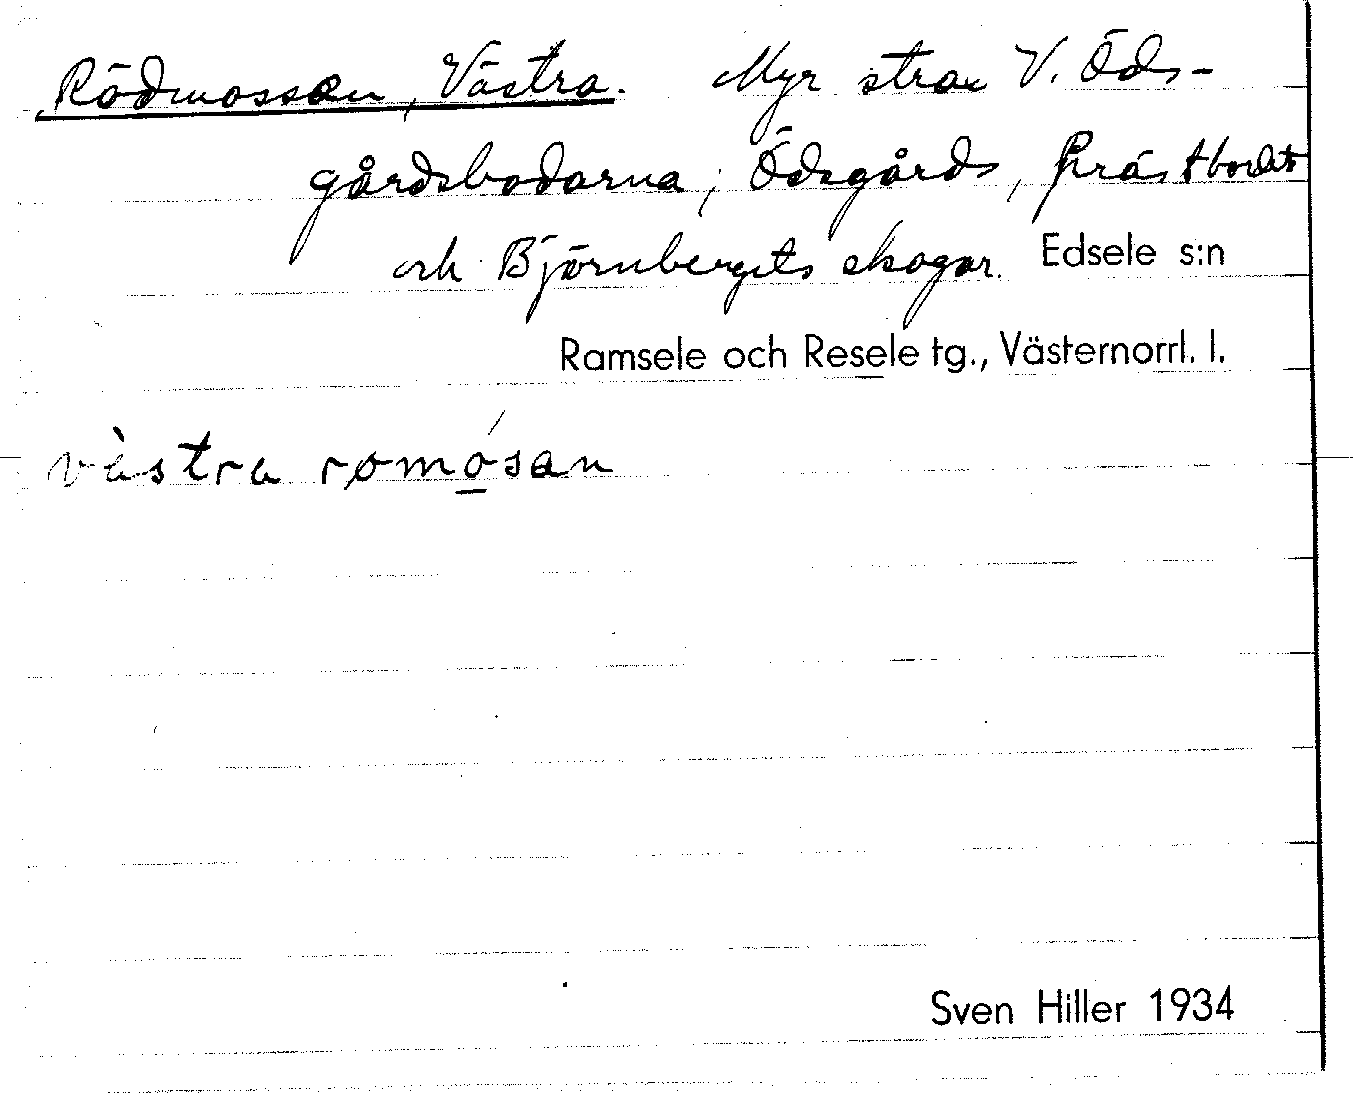 Rödmossen, Västra. Myr strax V. Öds-
gårdsbodarna, Ödsgårds, Prästbordets
och Björnbergets skogar. Edsele s:n
Ramsele och Resele tg., Västernorrl. l.
vàstra romósan
Sven Hiller 1934